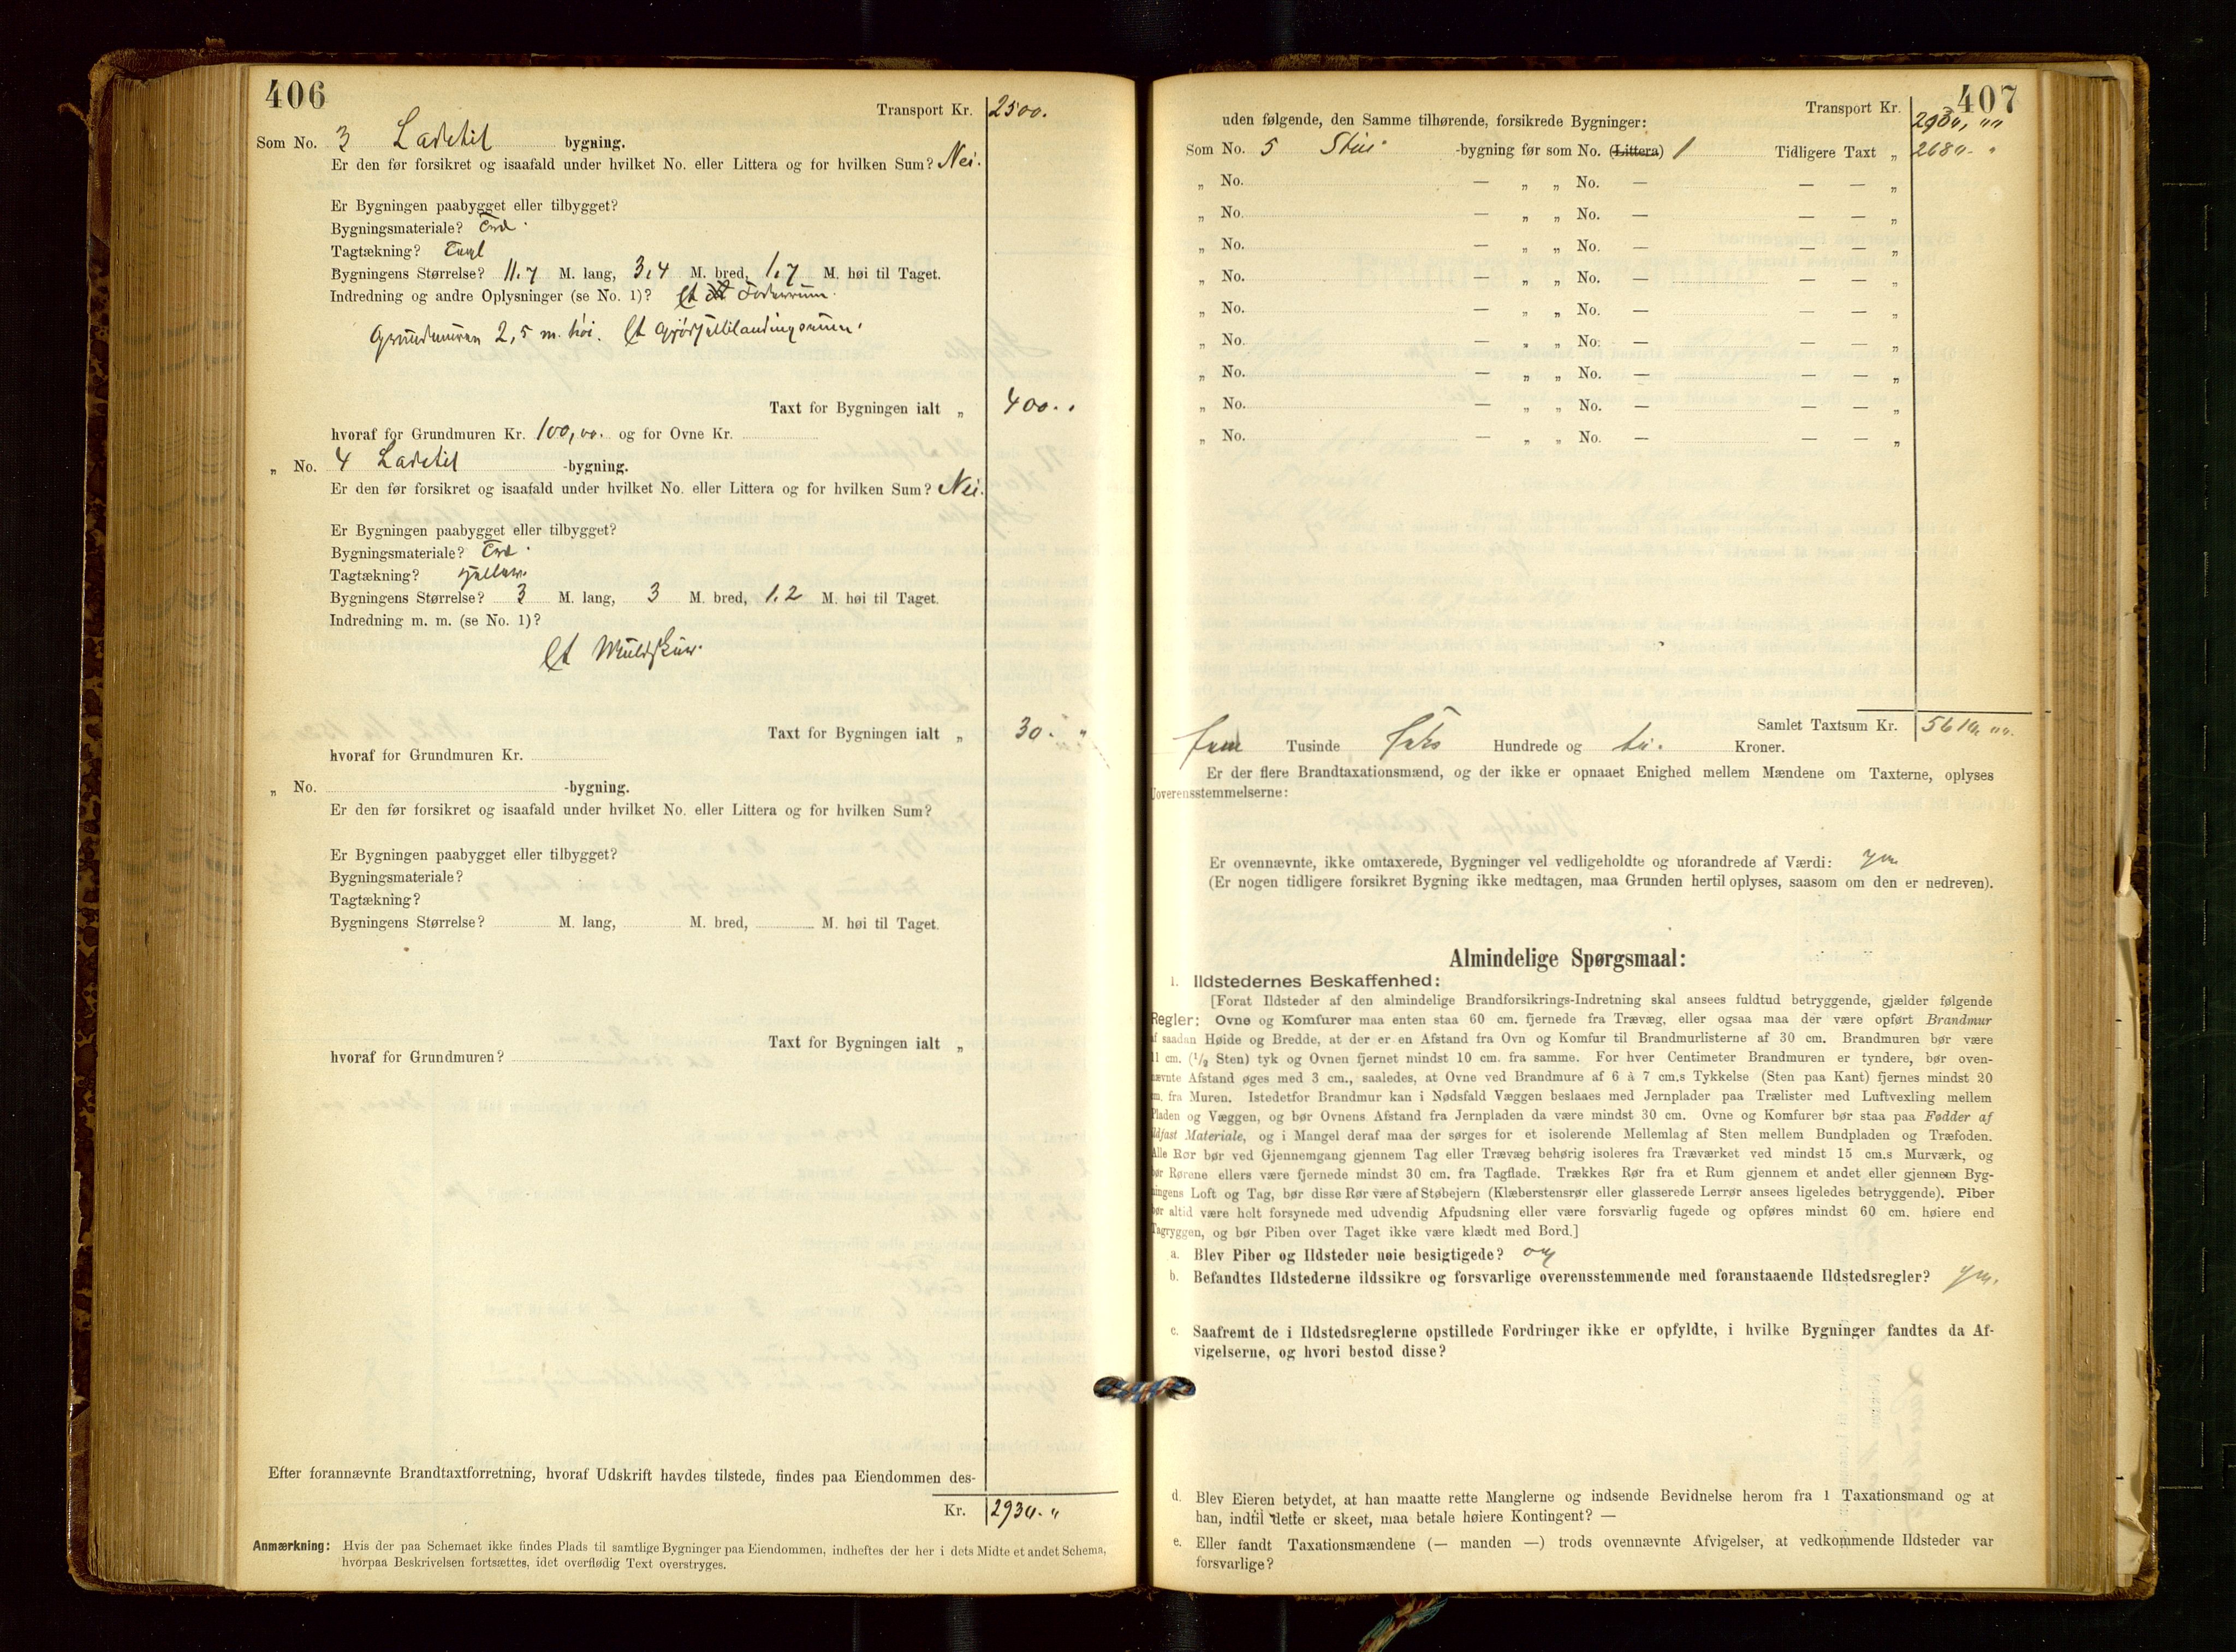 406
Transport Kr. 2500.
Som No. 3 Ladetil bygning.
Er den før forsikret og isaafald under hvilket No. eller Littera og for hvilken Sum? Nei.
Er Bygningen paabygget eller tilbygget?
Bygningsmateriale? Træ.
Tagtækning? Tagl
Bygningens Størrelse? 11,7 M. lang, 3,4 M. bred, 1,7 M. høi til Taget.
Indredning og andre Oplysninger (se No. 1)? Et Foderrum.
Grundmuren 2,5 m. høi. Et
Taxt for Bygningen ialt „ 400. „
hvoraf for Grundmuren Kr. 100,00. og for Ovne Kr.
„ No. 4 Ladetil -bygning.
Er den før forsikret og isaafald under hvilket No. eller Littera og for hvilken Sum? Nei.
Er Bygningen paabygget eller tilbygget?
Bygningsmateriale? Træ.
Tagtækning?
Bygningens Størrelse? 3 M. lang, 3 M. bred, 1,2 M. høi til Taget.
Indredning m. m. (se No. 1)?
Et Muldskur.
Taxt for Bygningen ialt „ 30. „
hvoraf for Grundmuren Kr.
„ No. -bygning.
Er den før forsikret og isaafald under hvilket No. eller Littera og for hvilken Sum?
Er Bygningen paabygget eller tilbygget?
Bygningsmateriale?
Tagtækning?
Bygningens Størrelse? M. lang, M. bred, M. høi til Taget.
Taxt for Bygningen ialt „
hvoraf for Grundmuren?
Efter forannævnte Brandtaxtforretning, hvoraf Udskrift havdes tilstede, findes paa Eiendommen des-
Kr. 2930. „
Anmærkning: Hvis der paa Schemaet ikke findes Plads til samtlige Bygninger paa Eiendommen, indheftes der her i dets Midte et andet Schema,
hvorpaa Beskrivelsen fortsættes, idet overflødig Text overstryges.
407
Transport Kr. 2930, „„
uden følgende, den Samme tilhørende, forsikrede Bygninger:
Som No. 5 Stue -bygning før som No. (Littera) 1 Tidligere Taxt „ 2680. „
„ No. — „ „ No. — — — „
„ No. — „ „ No. — — — „
„ No. — „ „ No. — — — „
„ No. — „ „ No. — — — „
„ No. — „ „ No. — — — „
„ No. — „ „ No. — — — „
„ No. — „ „ No. — — — „
„ No. — „ „ No. — — — „
„ No. — „ „ No. — — — „
Samlet Taxtsum Kr. 5610, „„
fem Tusinde seks Hundrede og ti. Kroner.
Er der flere Brandtaxationsmænd, og der ikke er opnaaet Enighed mellem Mændene om Taxterne, oplyses
Uoverensstemmelserne:
Er ovennævnte, ikke omtaxerede, Bygninger vel vedligeholdte og uforandrede af Værdi: ja
(Er nogen tidligere forsikret Bygning ikke medtagen, maa Grunden hertil oplyses, saasom om den er nedreven).
Almindelige Spørgsmaal:
1. Ildstedernes Beskaffenhed:
[Forat Ildsteder af den almindelige Brandforsikrings-Indretning skal ansees fuldtud betryggende, gjælder følgende
Regler: Ovne og Komfurer maa enten staa 60 cm. fjernede fra Trævæg, eller ogsaa maa der være opført Brandmur
af saadan Høide og Bredde, at der er en Afstand fra Ovn og Komfur til Brandmurlisterne af 30 cm. Brandmuren bør være
11 cm. (1/2 Sten) tyk og Ovnen fjernet mindst 10 cm. fra samme. For hver Centimeter Brandmuren er tyndere, bør oven-
nævnte Afstand øges med 3 cm., saaledes, at Ovne ved Brandmure af 6 à 7 cm.s Tykkelse (Sten paa Kant) fjernes mindst 20
cm. fra Muren. Istedetfor Brandmur kan i Nødsfald Væggen beslaaes med Jernplader paa Trælister med Luftvexling mellem
Pladen og Væggen, og bør Ovnens Afstand fra Jernpladen da være mindst 30 cm. Ovne og Komfurer bør staa paa Fødder af
ildfast Materiale, og i Mangel deraf maa der sørges for et isolerende Mellemlag af Sten mellem Bundpladen og Træfoden.
Alle Rør bør ved Gjennemgang gjennem Tag eller Trævæg behørig isoleres fra Træværket ved mindst 15 cm.s Murværk, og
bør Rørene ellers være fjernede mindst 30 cm. fra Tagflade. Trækkes Rør fra et Rum gjennem et andet eller gjennem Byg-
ningens Loft og Tag, bør disse Rør være af Støbejern (Klæberstensrør eller glasserede Lerrør ansees ligeledes betryggende). Piber
bør altid være helt forsynede med udvendig Afpudsning eller være forsvarlig fugede og opføres mindst 60 cm. høiere end
Tagryggen, og bør Piben over Taget ikke være klædt med Bord.]
a. Blev Piber og Ildsteder nøie besigtigede?
b. Befandtes Ildstederne ildssikre og forsvarlige overensstemmende med foranstaaende Ildstedsregler? ja.
c. Saafremt de i Ildstedsreglerne opstillede Fordringer ikke er opfyldte, i hvilke Bygninger fandtes da Af-
vigelserne, og hvori bestod disse?
d. Blev Eieren betydet, at han maatte rette Manglerne og indsende Bevidnelse herom fra 1 Taxationsmand og at
han, indtil dette er skeet, maa betale høiere Kontingent? —
e. Eller fandt Taxationsmændene (— manden —) trods ovennævnte Afvigelser, at vedkommende Ildsteder var
forsvarlige?